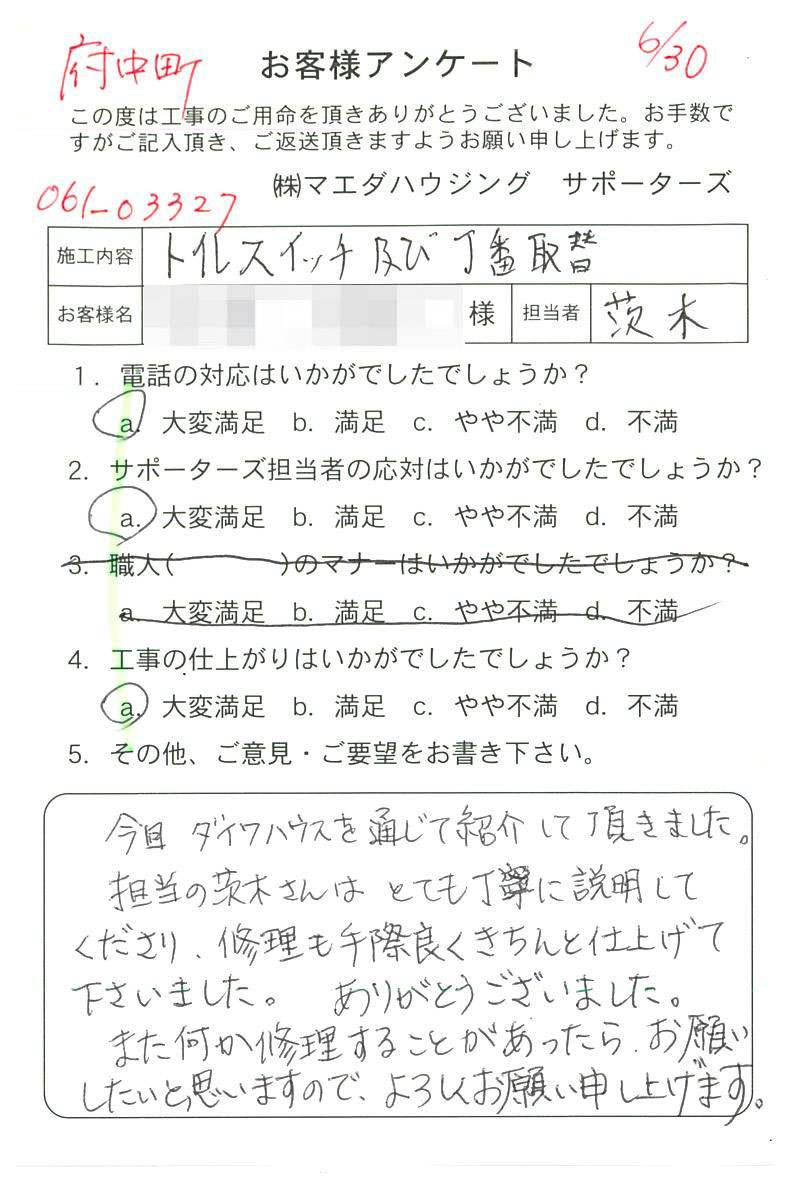 府中町
お客様アンケート
6/30
この度は工事のご用命を頂きありがとうございました。お手数で
すがご記入頂き、ご返送頂きますようお願い申し上げます。
061-03327
㈱マエダハウジング サポーターズ
施工内容 トイレスイッチ及び丁番取替
お客様名 様 担当者 茨木
1. 電話の対応はいかがでしたでしょうか?
a. 大変満足 b. 満足 c. やや不満 d. 不満
2. サポーターズ担当者の応対はいかがでしたでしょうか?
a. 大変満足 b. 満足 c. やや不満 d. 不満
3. 職人( )のマナーはいかがでしたでしょうか?
a. 大変満足 b. 満足 c. やや不満 d. 不満
4. 工事の仕上がりはいかがでしたでしょうか?
a. 大変満足 b. 満足 c. やや不満 d. 不満
5. その他、ご意見・ご要望をお書き下さい。
今回 ダイワハウスを通じて紹介して頂きました。
担当の茨木さんは とても丁寧に説明して
くださり、修理も手際良くきちんと仕上げて
下さいました。 ありがとうございました。
また何か修理することがあったら、お願い
したいと思いますので、よろしくお願い申し上げます。